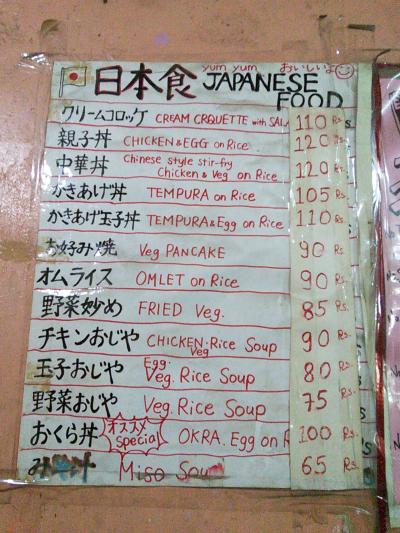 yum yum おいしいよ
日本食 JAPANESE FOOD
クリームコロッケ CREAM CRQUETTE with SALA 110 Rs
親子丼 CHICKEN & EGG on Rice 120 Rs.
中華丼 Chinese style stir-fry Chicken & Veg on Rice 120 Rs.
かきあげ丼 TEMPURA on Rice 105 Rs.
かきあげ玉子丼 TEMPURA & Egg on Rice 110 Rs.
お好み焼 Veg PANCAKE 90 Rs.
オムライス OMLET on Rice 90 Rs.
野菜妙め FRIED Veg. 85 Rs.
チキンおじや CHICKEN・Veg Rice Soup 90 Rs.
玉子おじや Egg・Veg. Rice Soup 80 Rs.
野菜おじや Veg. Rice Soup 75 Rs.
おくら丼 オススメ Special OKRA. Egg on R 100 Rs.
み 汁 Miso Sou 65 Rs.